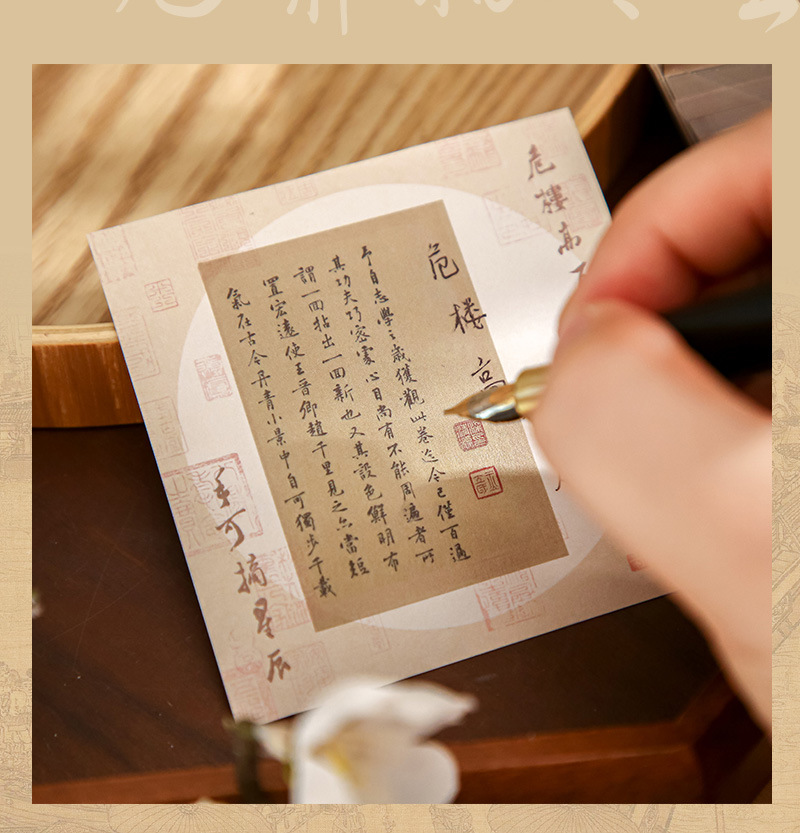 危樓高
危楼高
予自志學之歲獲觀此卷迄今已僅百過
其功夫巧密處心目尚有不能周遍者所
謂一回拈出一回新也又其設色鮮明布
置宏遠使王晉卿趙千里見之亦當短
氣在古今丹青小景中自可獨步千載
手可摘星辰